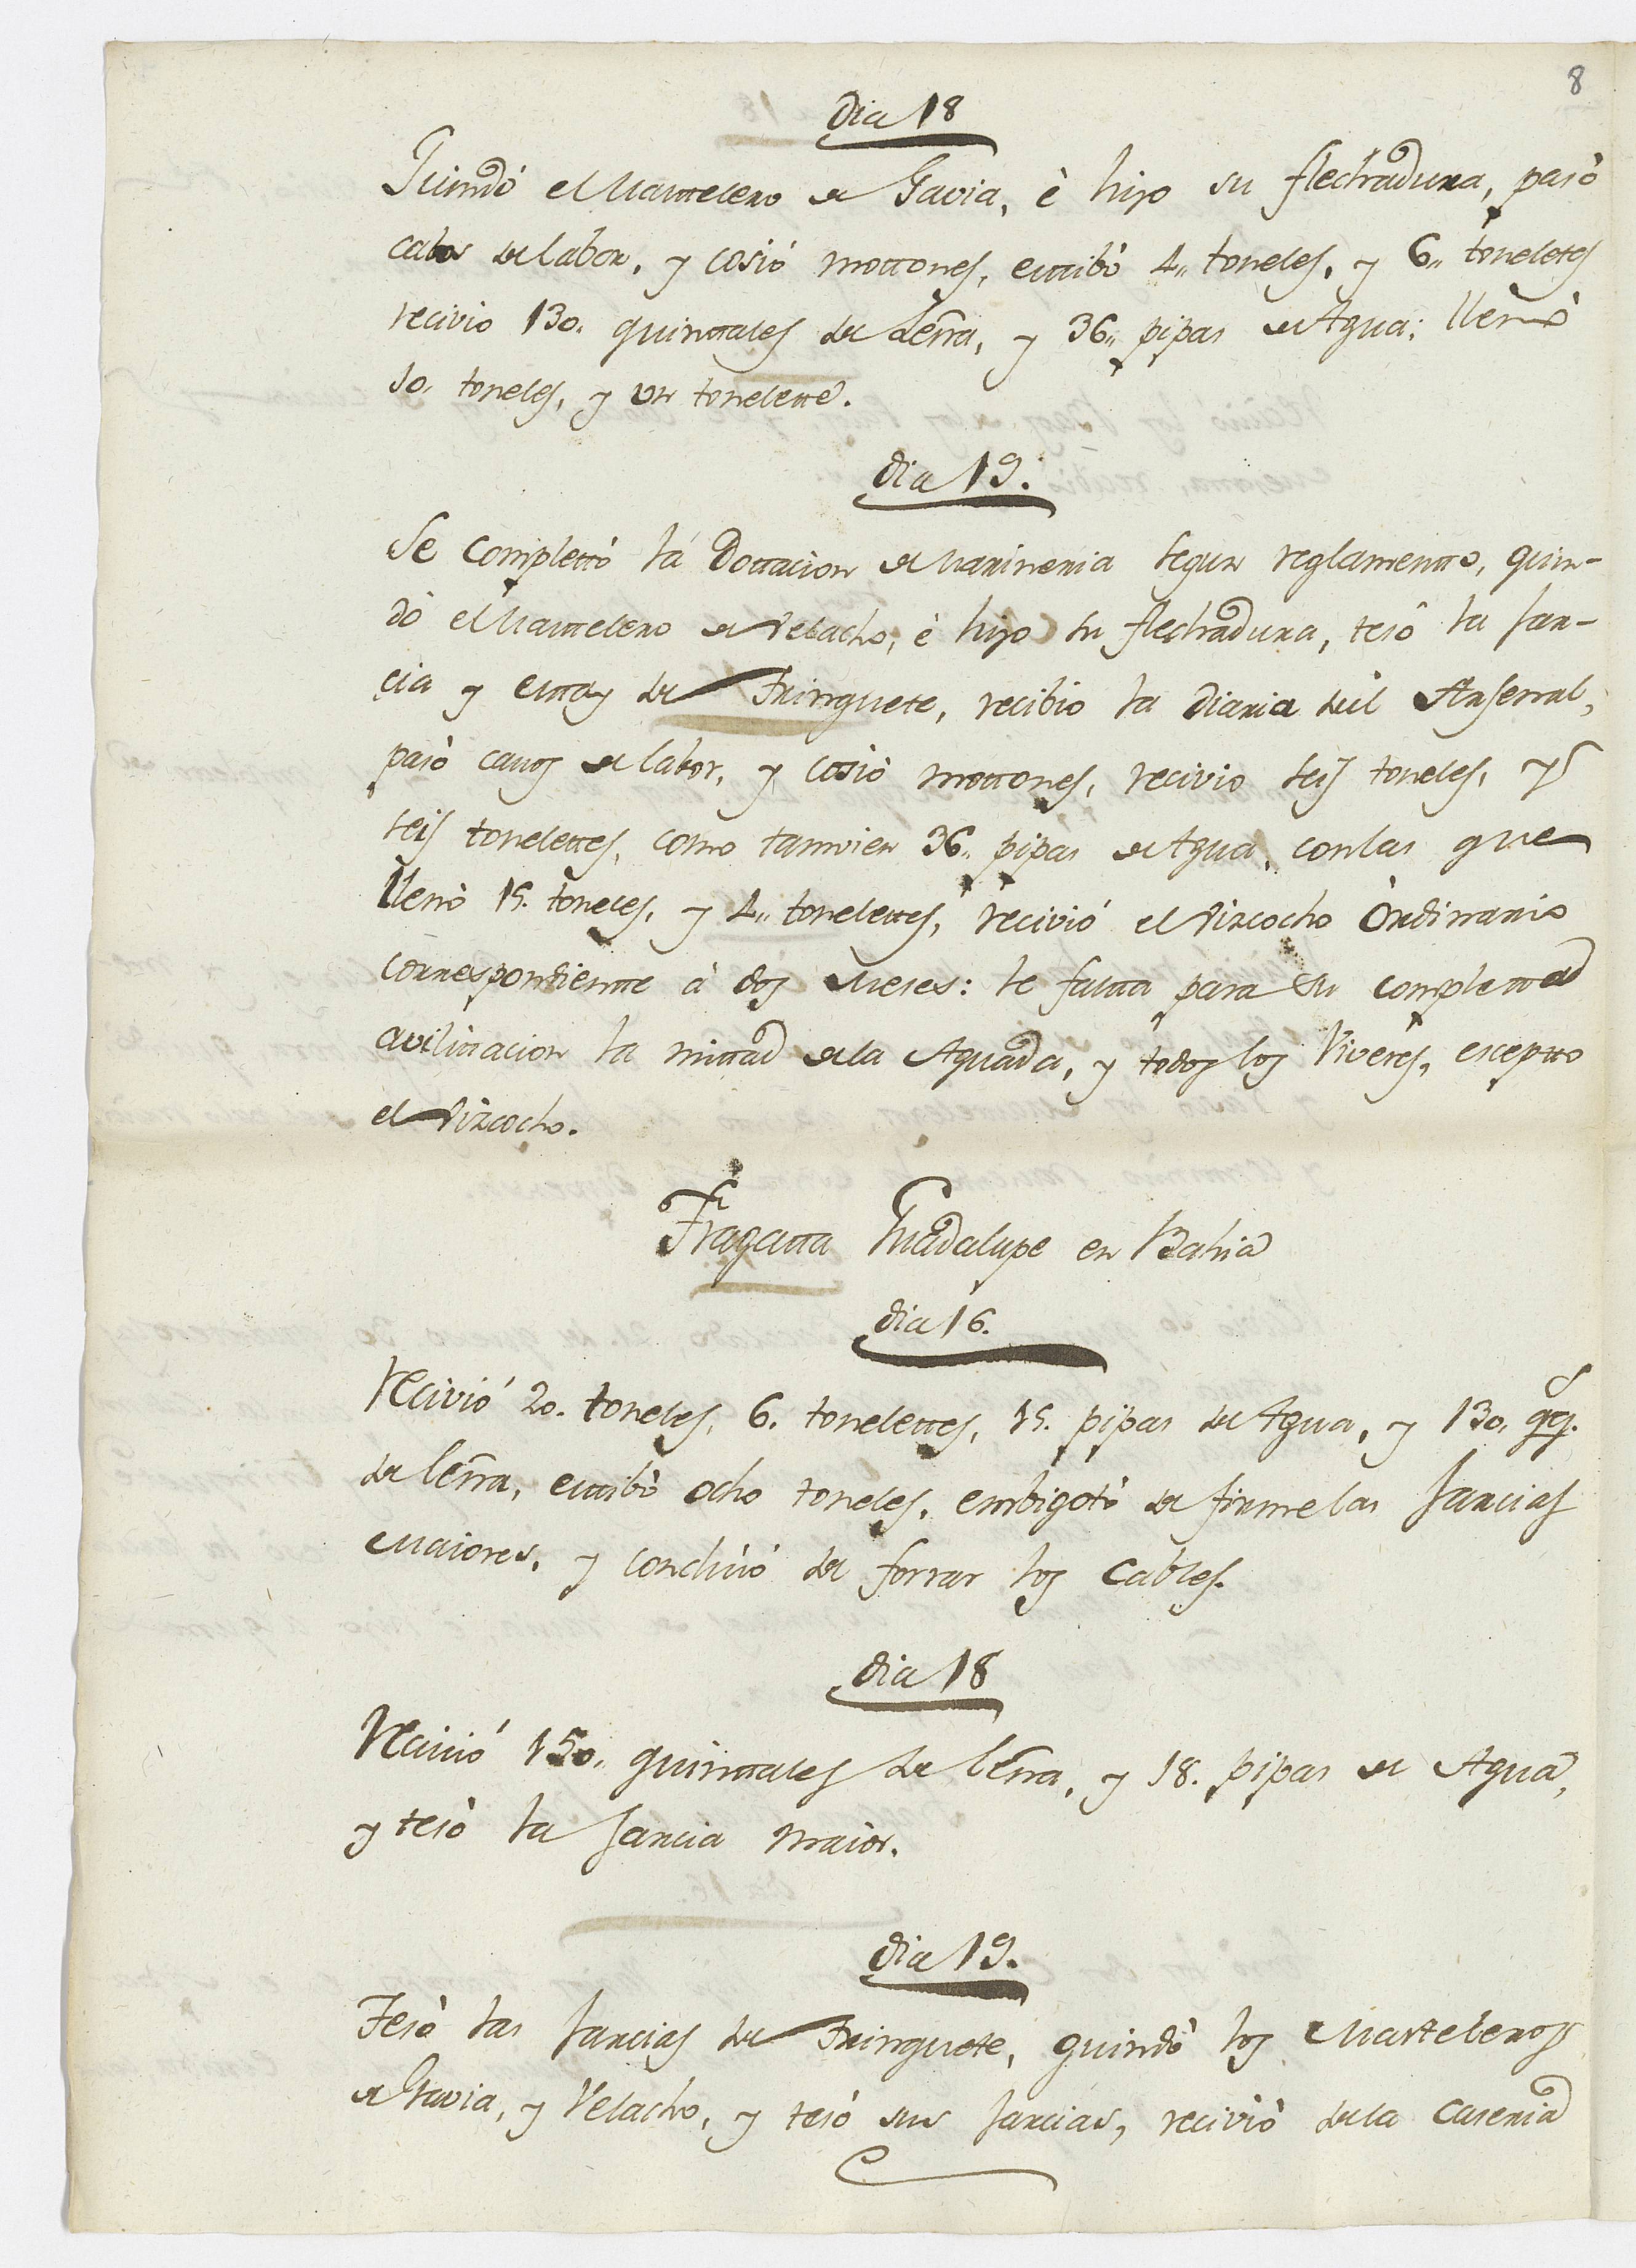 8
Dia 18
Guindó el Mastelero de Gavia, è hizo su flechadura, pasò
cabos de labor, y cosió mottones, estibò 4,, toneles, y 6,, toneletes
recivio 130. quinttales de Leña, y 36,, pipas de Agua: llenò
10. toneles, y un tonelette.
dia 19.
Se complettò la Dottacion de Marineria segun reglamentto, guin-
dò el Mastelero de Velacho, è hizo su flechadura, tesò la Jar-
cia y Esttay de Trinquete, recibio la Diaria del Arsenal,
pasò cavos de labor, y cosiò mottones, recivio seis toneles, y
seis tonelettes, como tamvien 36,, pipas de Agua, con las que
llenò 15. toneles, y 4,, tonelettes, recivió el Vizcocho Ordinario
correspondientte à dos Meses: le faltta para su complettad
avilittacion la mittad de la Aguada, y todos los Viveres, excepto
el Vizcocho.
Fragatta Guadalupe en Bahia
dia 16.
Recivió 20. toneles, 6. tonelettes, 15. pipas de Agua, y 130. qq.s
de leña, estibò ocho toneles, embigotò de firme las Jarcias
Maiores, y concluió de forrar los Cables.
dia 18
Recivió 150,, quinttales de leña, y 18. pipas de Agua,
y tesò la Jarcia maior.
dia 19.
Tesò las Jarcias de Trinquete, guindò los Masteleros
de Gavia, y Velacho, y tesó sus Jarcias, recivió de la Caseria